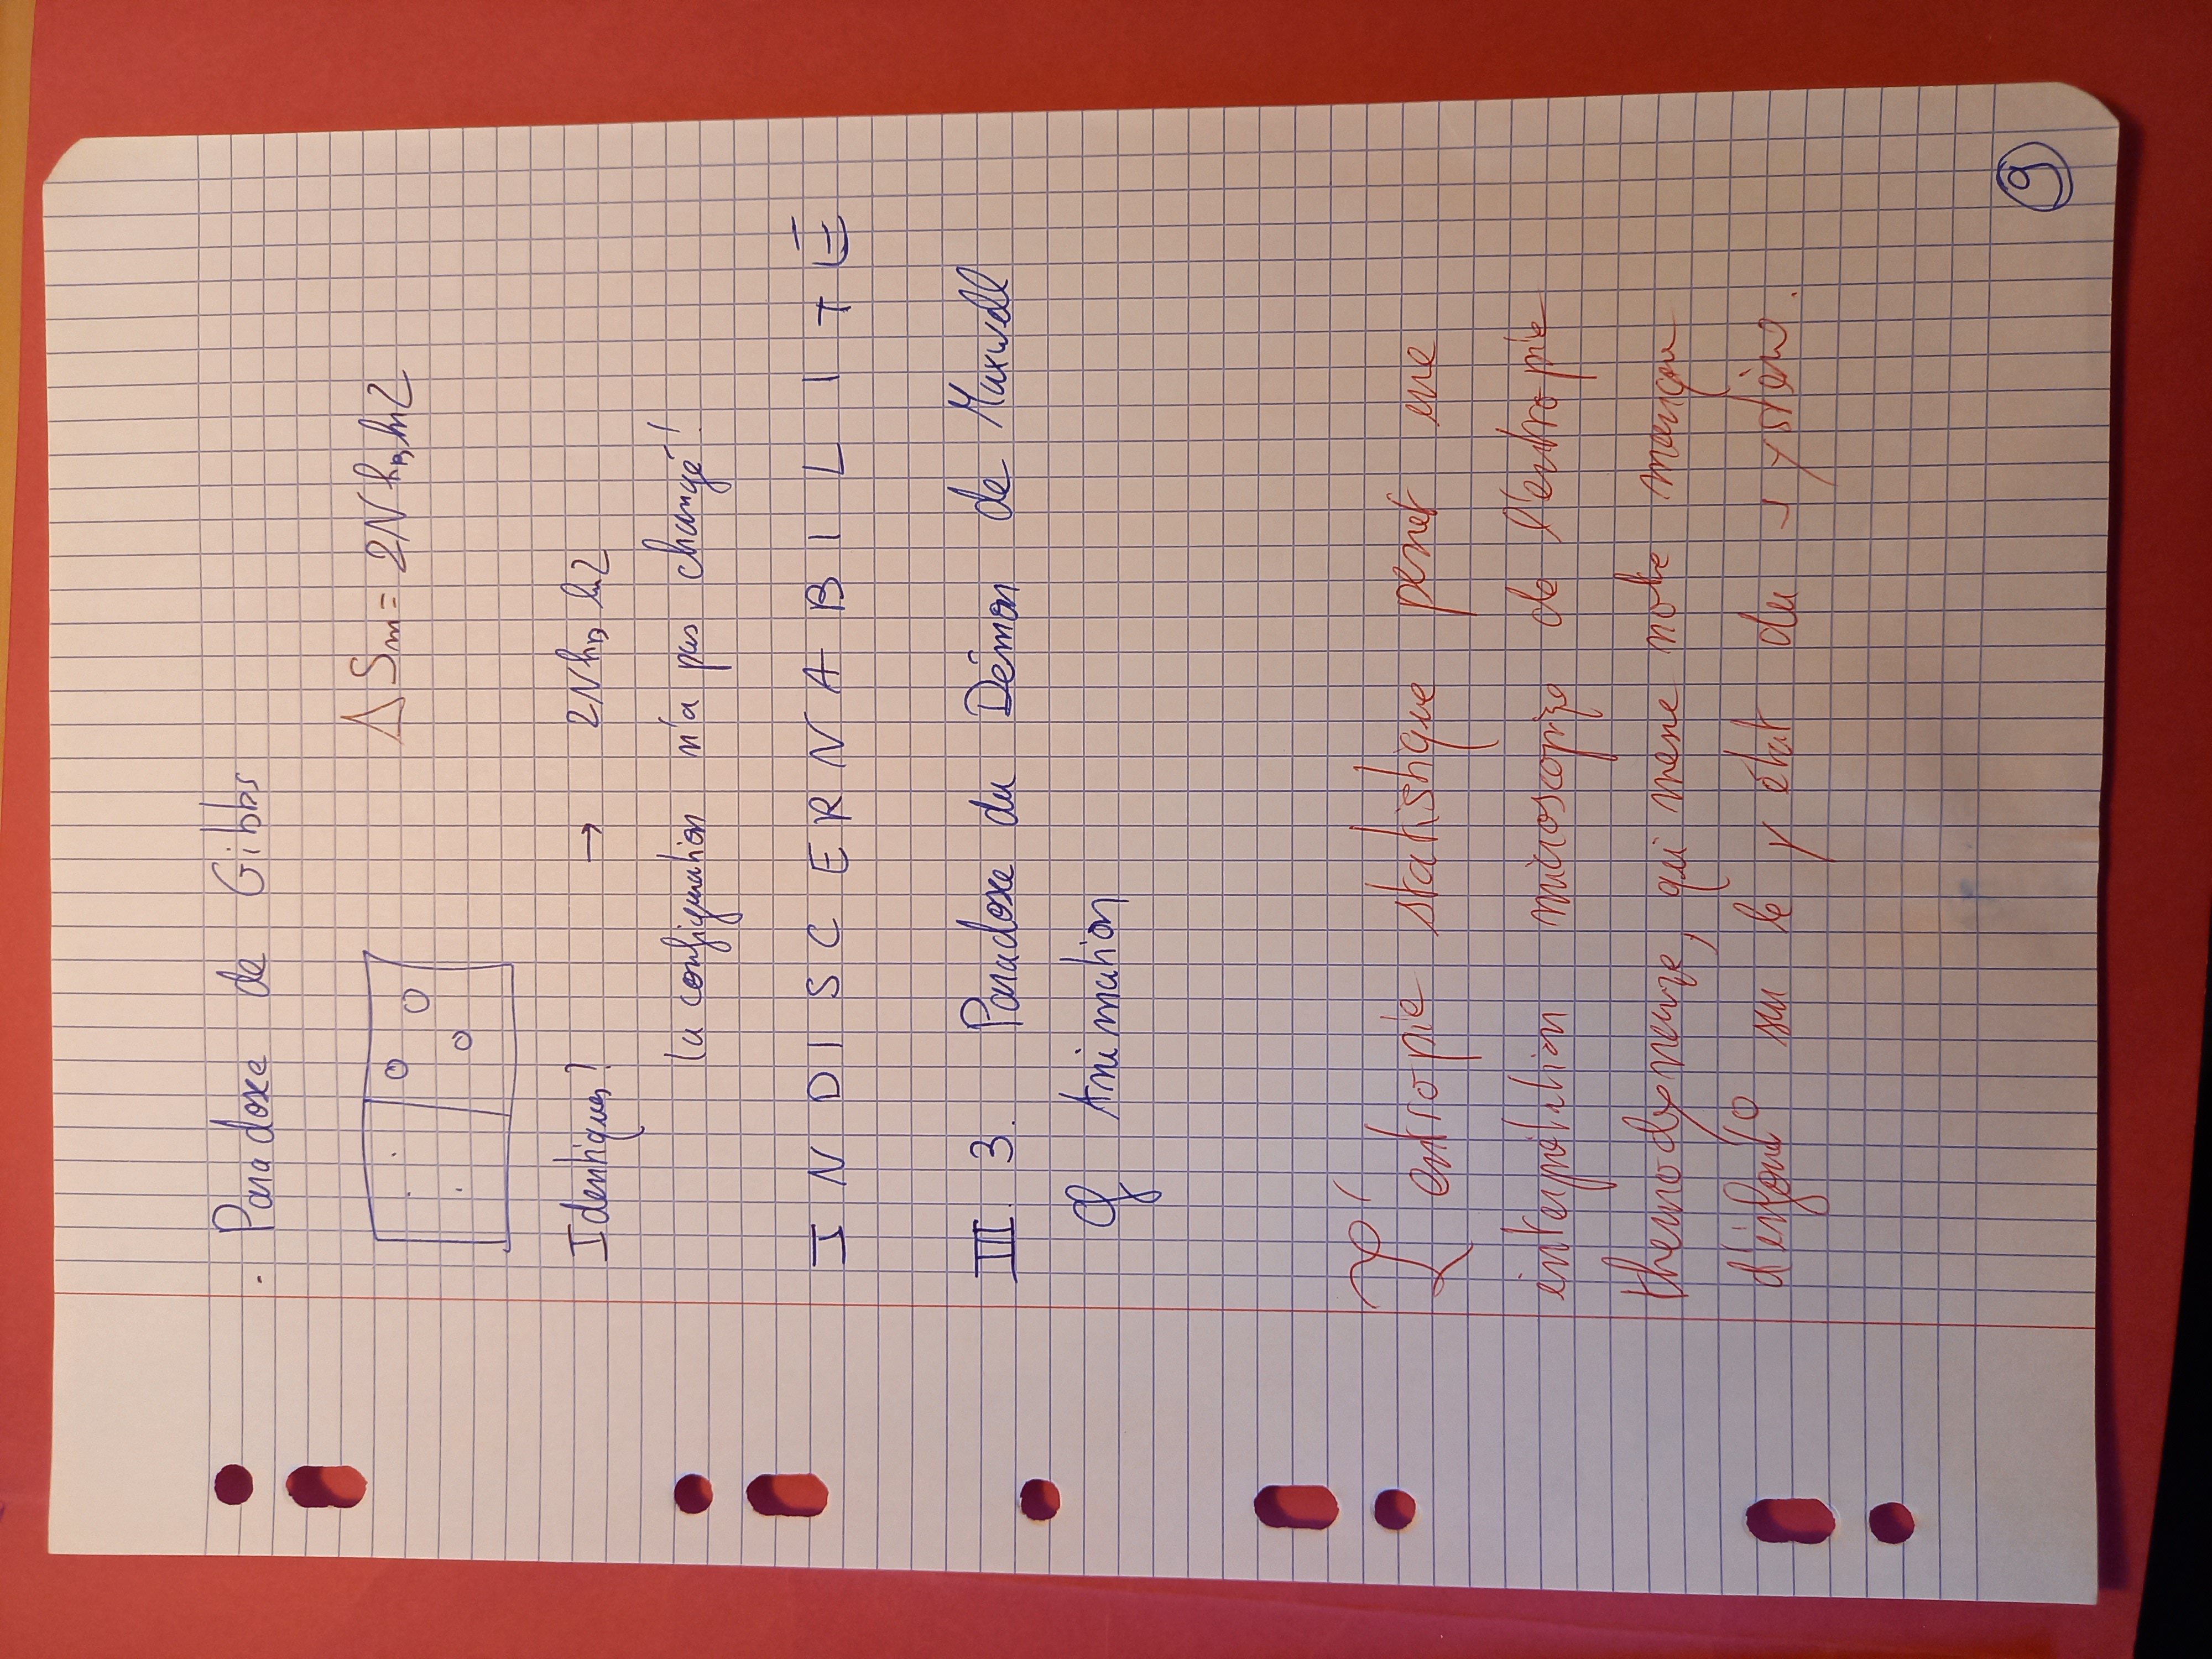 . Paradoxe de Gibbs
ΔSm = 2N kB ln2
Identiques! → 2N kB ln2
la configuration n'a pas changé!
I N D I S C E R N A B I L I T É
III. 3. Paradoxe du Démon de Maxwell
Cf Animation
L'entropie statistique permet une
interprétation microscopiqe de l'entropie
thermodynamiqe, qui mesure notre manque
d'info sur le µ état du système.
9